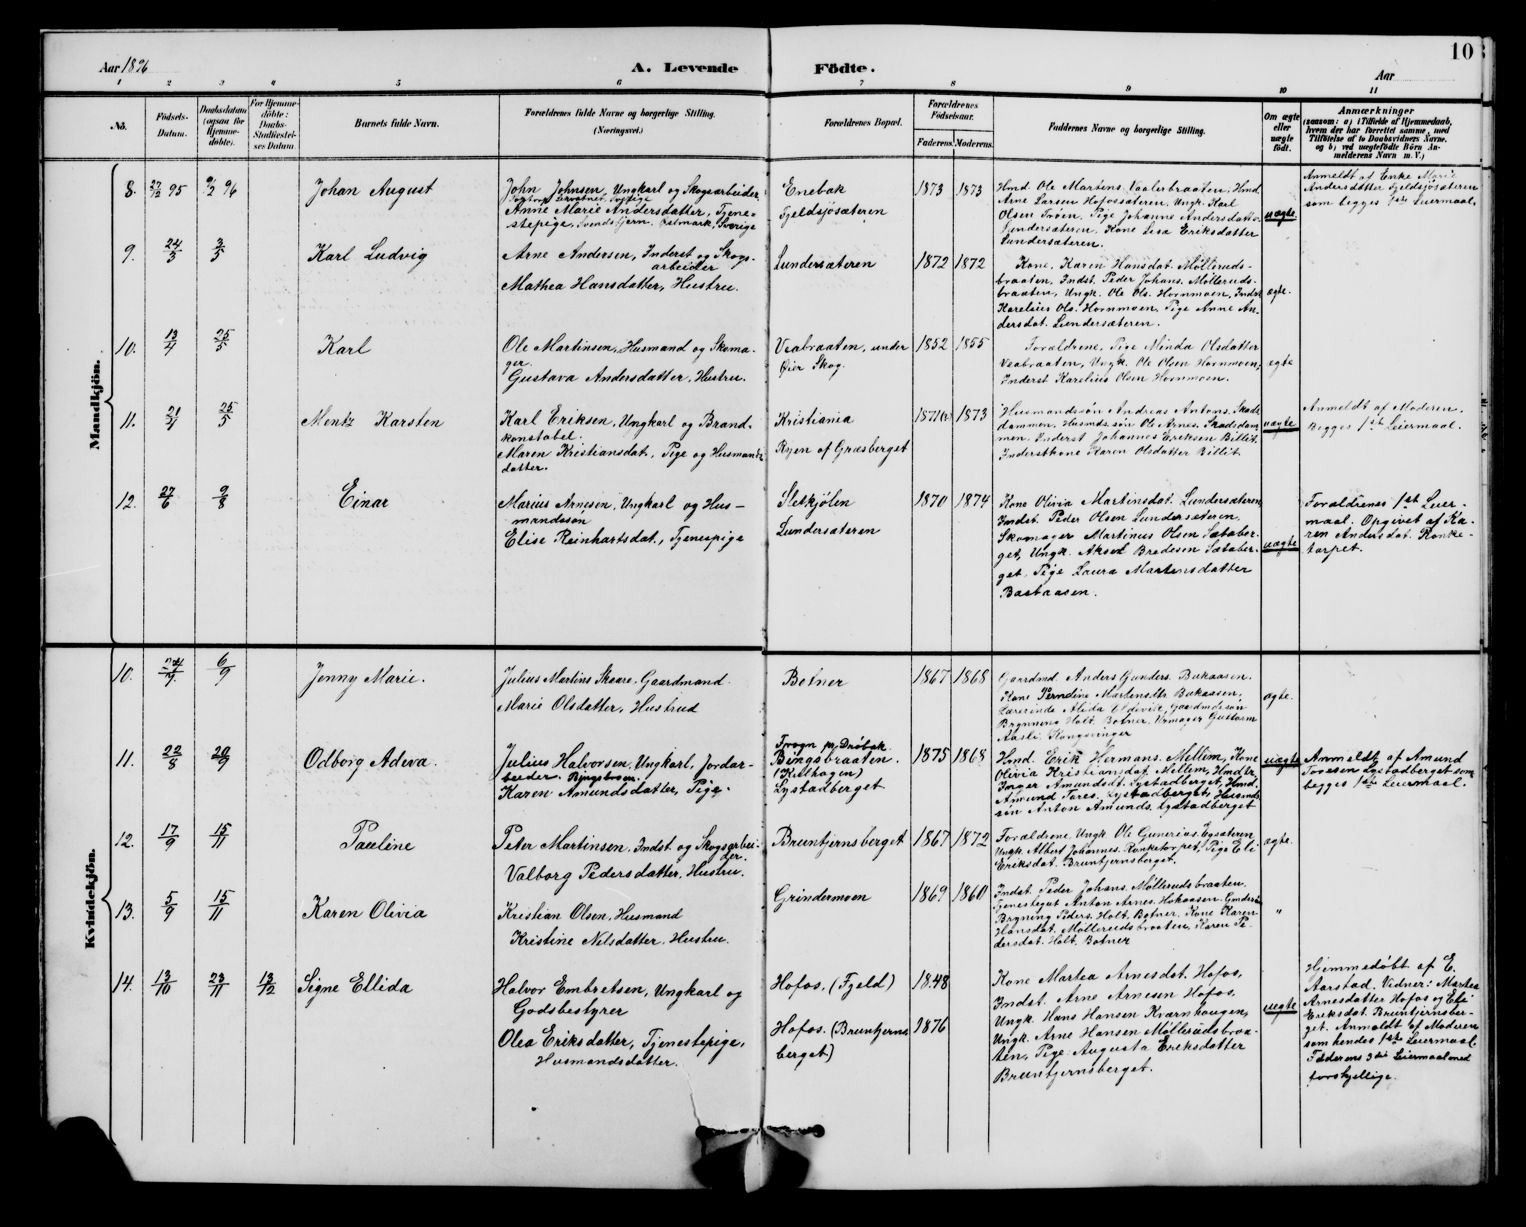 Aar 1896
A. Levende Fødte.
Aar
10
1 2 3 4 5 6 7 8 9 10 11
No.
Fødsels-
Datum.
Daabsdatum
(ogsaa for
Hjemme-
døbte).
For Hjemme-
døbte:
Daabs-
Stadfæstel-
ses Datum.
Barnets fulde Navn.
Forældrenes fulde Navne og borgerlige Stilling.
(Næringsvei.)
Forældrenes Bopæl.
Forældrenes
Fødselsaar.
Faderens. Moderens.
Faddernes Navne og borgerlige Stilling.
Om ægte
eller
uægte
født.
Anmærkninger
(saasom: a) i Tilfælde af Hjemmedaab,
hvem der har forrettet samme, med
Tilføielse af to Daabsvidners Navne,
og b) ved uægtefødte Børn An-
melderens Navn m. V.)
Mandkjön.
8. 27/12 95 9/2 96 Johan August
John Johnsen, Ungkarl og Skogsarbeider
Anne Marie Andersdatter, Tjene-
stepige, Svends Tjern, Sverige
Enebak
Fjeldsjøsæteren
1873 1873
Hmd. Ole Martins. Vaalerbraaten, Hmd.
Arne Larsen Hofossæteren, Ungk. Karl
Olsen Trøen, Pige Johanne Andersdatter
Lundersæteren, Kone Lisa Eriksdatter
Lundersæteren.
uægte
Anmeldt af Enke Marie
Andersdatter Fjeldsjøsæteren
som begges 1ste Leiermaal.
9. 24/3 3/5 Karl Ludvig
Arne Andersen, Inderst og Skogs-
arbeider
Mathea Hansdatter, Hustru.
Lundersæteren
1872 1872
Kone, Karen Hansdat. Mølleruds-
braaten, Indst. Peder Johans. Mølleruds-
braaten, Ungk. Ole Ols. Hornmoen, Indst.
Karelius Ols. Hornmoen, Pige Anne An-
dersdat. Lundersæteren.
ægte.
10. 13/4 25/5 Karl
Ole Martinsen, Husmand og Skoma-
ger.
Gustava Andersdatter, Hustru.
Veabraaten, under
Øier Skog.
1852 1855
Forældrene, Pige Minda Olsdatter
Veabraaten, Ungk. Ole Olsen Hornmoen,
Inderst Karelius Olsen Hornmoen.
ægte
11. 21/4 25/5 Mentz Karsten
Karl Eriksen, Ungkarl og Brand-
konstabel.
Maren Kristiansdat., Pige og Husmands-
datter.
Kristiania
Ryen af Græsberget
1871(?) 1873
Husmandssøn Andreas Antons. Skads-
dammen, Husmds.søn Ole Arnes. Skadsdam-
men, Inderst Johannes Eriksen Billit,
Inderstkone Karen Olsdatter Billit.
uægte
Anmeldt af Moderen.
Begges 1ste Leiermaal.
12. 27/6 9/8 Einar
Marius Arnesen, Ungkarl og Hus-
mandssøn
Elise Reinhartsdat., Tjenespige
Sletkjølen
Lundersæteren
1870 1874
Kone Olivia Martinsdat. Lundersæteren,
Indst. Peder Olsen Lundersæteren,
Skomager Martinus Olsen Sætaber-
get, Ungk. Aksel Bredesen Sætaber-
get, Pige Laura Martinsdatter
Bastaasen.
uægte
Forældrenes 1ste Leier-
maal. Opgivet af Ka-
ren Andersdat. Ronke-
torpet.
Kvindekjön.
10. 24/7. 6/9 Jenny Marie.
Julius Martins Skaare, Gaardmand.
Marie Olsdatter, Hustrud
Botner
1867 1868
Gaardmd. Anders Gunders. Bukaasen,
Kone Perndine Martinsdtr. Bukaasen,
Lærerinde Alida Oldevik, Gaardmdssøn
Brynning Holt, Botner, Urmager Gustorm
Aasli Kongsvinger
ægte.
11. 22/8 20/9 Odborg Adeva.
Julius Halvorsen, Ungkarl, Jordar-
beider. Ringsboen.
Karen Amundsdatter, Pige.
Frogn pr. Drøbak
Bingsbraaten.
(Kilthagen)
Lystadberget
1875 1868
Hmd. Erik Hermans. Mellem, Kone
Olivia Kristiansdat. Mellem, Hmdtr.
Inger Amundsdt. Lystadberget, Hmd.
Amund Tores. Lystadberget, Husmds-
søn Anton Amunds. Lystadberget
uægte
Anmeldt af Amund
Toresen Lystadberget som
begges 1ste Leiermaal.
12. 17/9 15/11 Pauline
Peter Martinsen, Indst. og Skogsarbei-
der.
Valborg Pedersdatter, Hustru.
Bruntjernsberget
1867 1872
Forældrene, Ungk. Ole Gunerius. Egsæteren,
Ungk. Albert Johannes. Ronketorpet, Pige Eli
Eriksdat. Bruntjernsberget.
ægte.
13. 5/9 15/11 Karen Olivia
Kristian Olsen, Husmand
Kristine Nilsdatter, Hustru.
Grindermoen
1869 1860
Indst. Peder Johans. Møllerudsbraaten,
Tjenestegut Anton Arnes. Hokaasen,
Bryning Peders. Holt Botner, Kone Karen
Hansdat. Møllerudsbraaten, Karen Pe-
dersdat. Holt, Botner
"
14. 13/10 23/11 13/12 Signe Ellida
Halvor Embretsen, Ungkarl og
Godsbestyrer
Olea Eriksdatter, Tjenestepige,
Husmandsdatter.
Hofos, (Fjeld)
Hofos. (Bruntjerns-
berget)
1848
1876
Kone Martea Arnesdat. Hofos,
Indst. Arne Arnesen Hofos,
Ungk. Hans Hansen Kværnhougen,
Ungk. Arne Hansen Møllerudsbraa-
ten, Pige Augusta Eriksdatter
Bruntjernsberget.
uægte
Hjemmedøbt af E.
Aarstad. Vidner: Martea
Arnesdatter Hofos og Eli
Eriksdat. Bruntjernsber-
get. Anmeldt af Moderen
som hendes 1ste Leiermaal
Faderens 3die Leiermaal med
forskjellige.